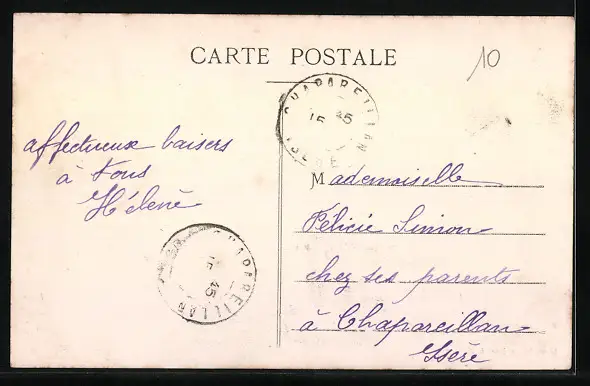 CARTE POSTALE
10
affectueux baisers
à tous
Hélène
Mademoiselle
Félicie Simon
chez ses parents
à Chapareillan
Isère
CHAPAREILLAN
15 45
ISERE
CHAPAREILLAN
15 45